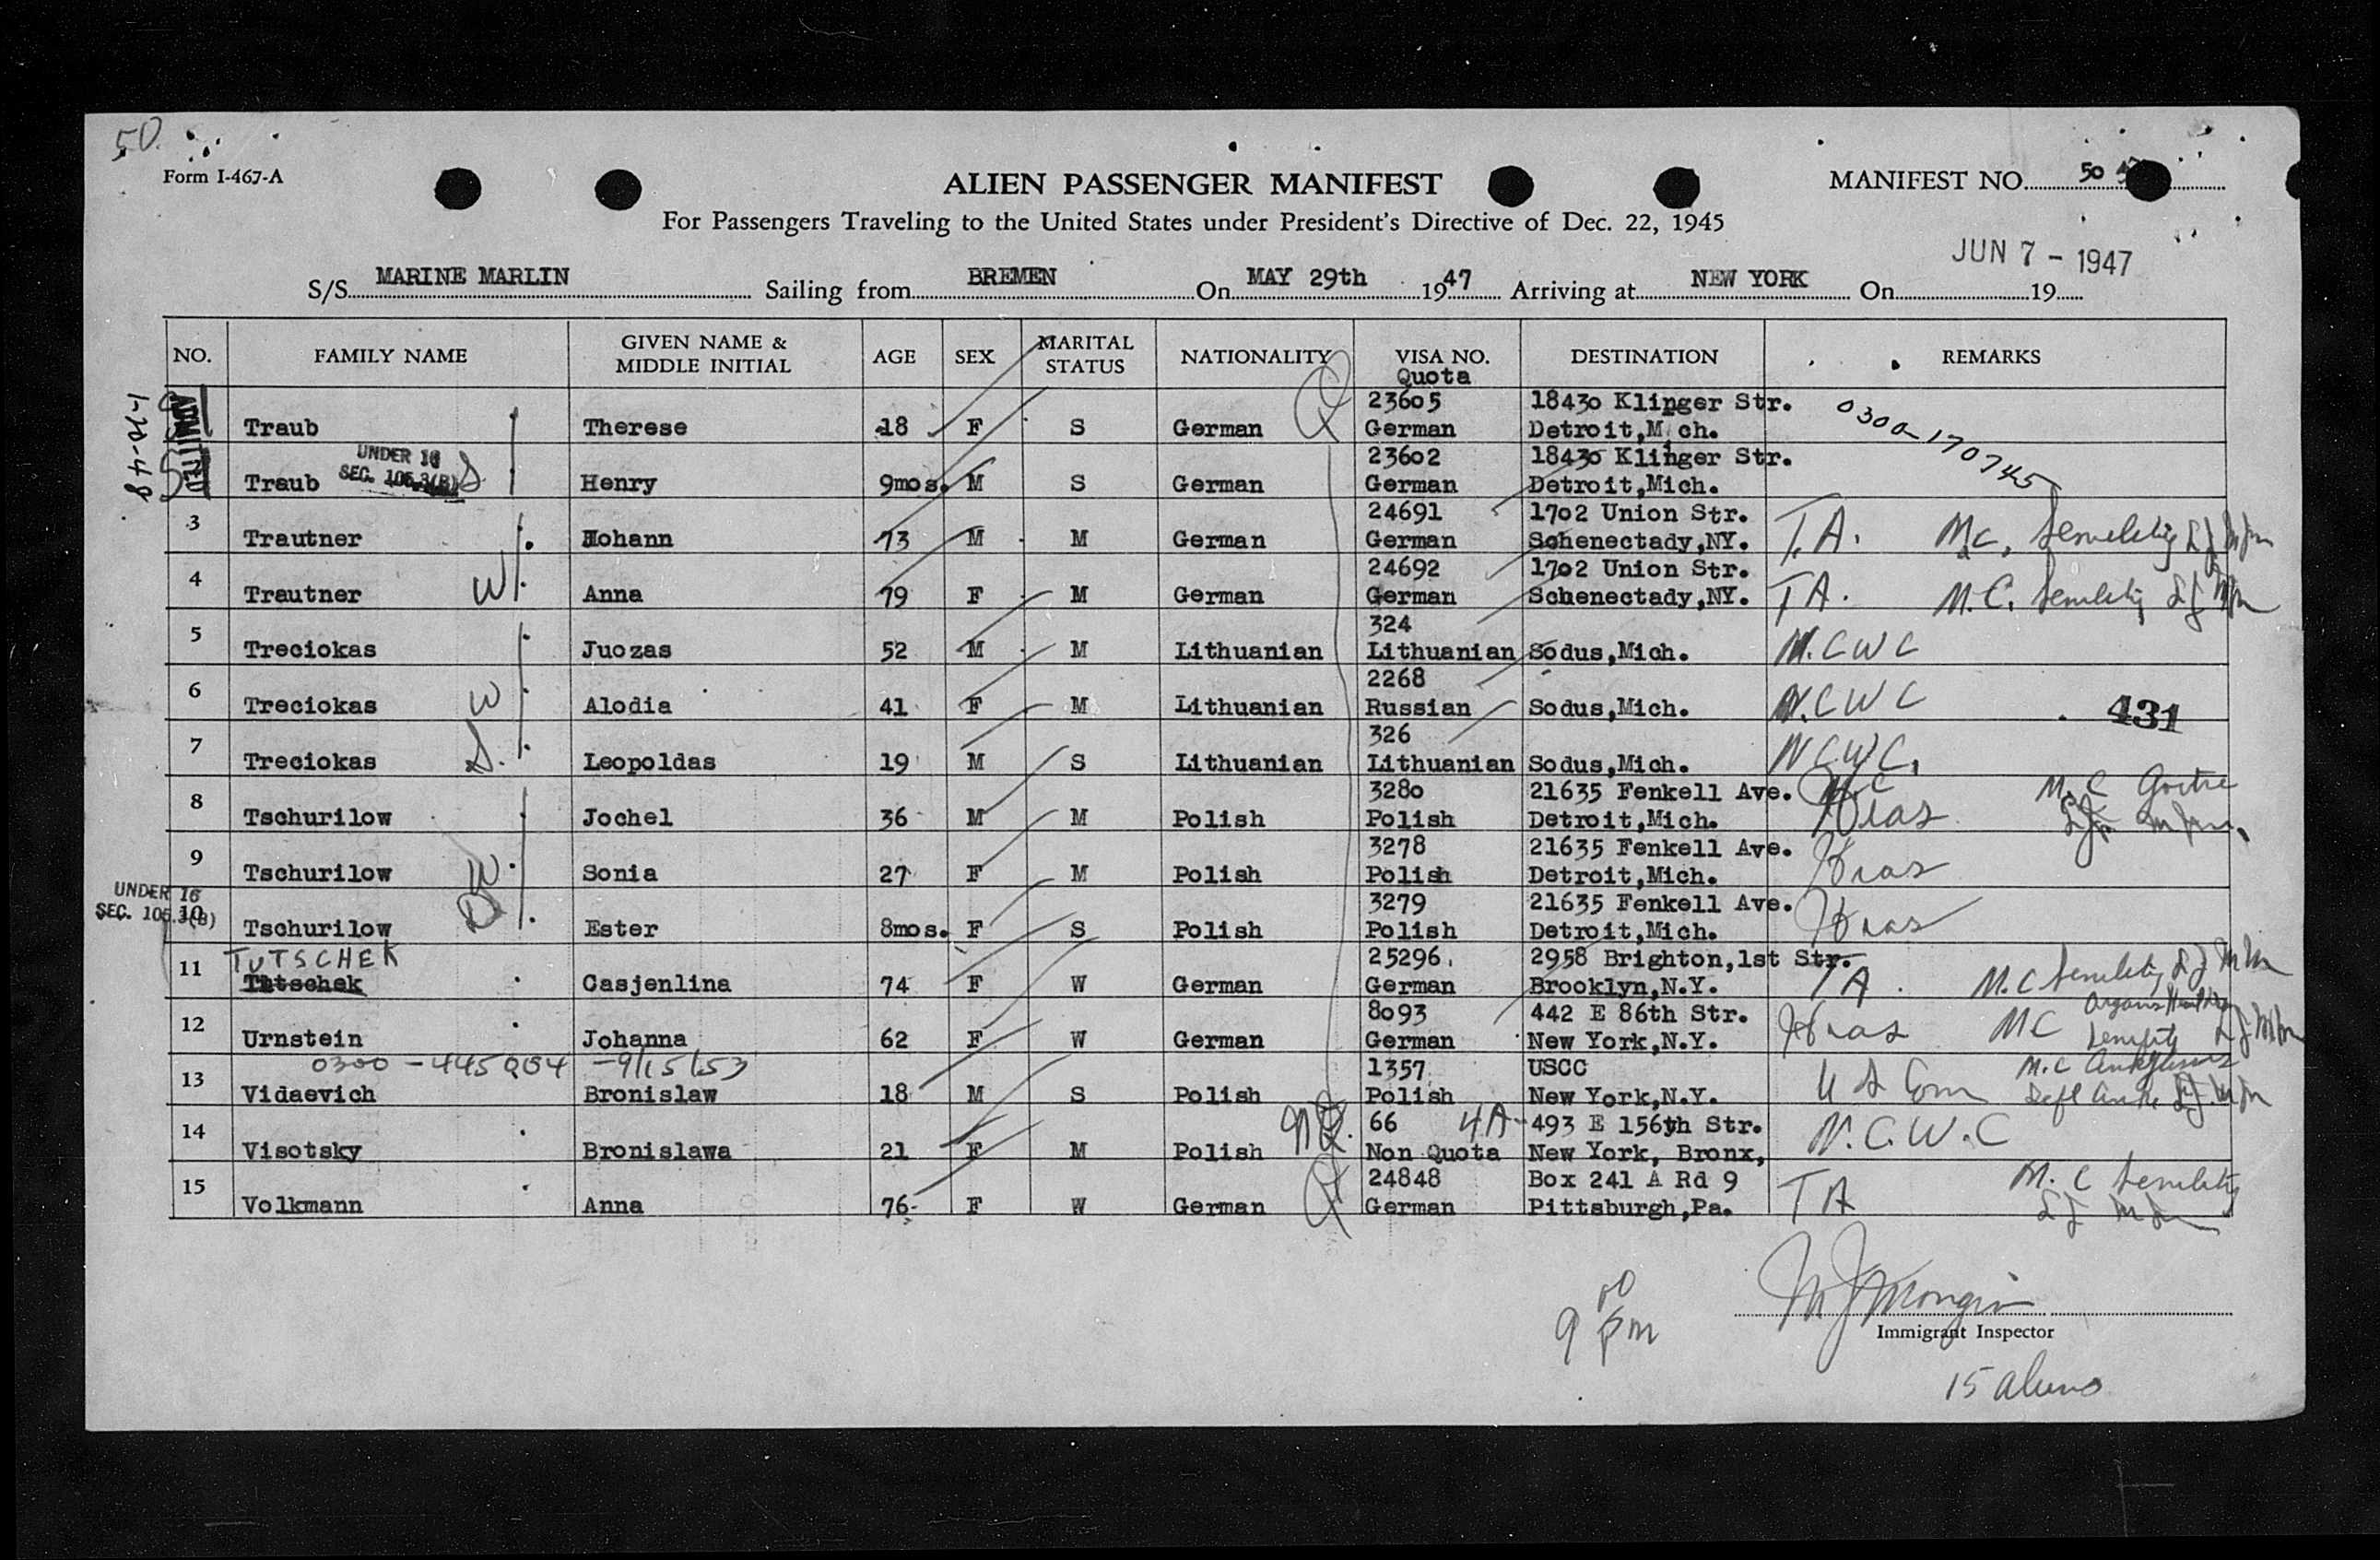 50
Form I-467-A
ALIEN PASSENGER MANIFEST
MANIFEST NO. 50
For Passengers Traveling to the United States under President's Directive of Dec. 22, 1945
JUN 7 - 1947
S/S MARINE MARLIN Sailing from BREMEN On MAY 29th 1947 Arriving at NEW YORK On 19
NO. FAMILY NAME GIVEN NAME & MIDDLE INITIAL AGE SEX MARITAL STATUS NATIONALITY VISA NO. DESTINATION REMARKS
Quota
ADMITTED
23605 18430 Klinger Str. 0300-170745
Traub Therese 18 F S German German Detroit,Mich.
UNDER 16 23602 18430 Klinger Str.
Traub SEC. 105.3(B) S Henry 9mos. M S German German Detroit,Mich.
3 24691 1702 Union Str.
Trautner Hohann 73 M M German German Schenectady,NY. T.A. M.C. Senility
4 24692 1702 Union Str.
Trautner W Anna 79 F M German German Schenectady,NY. T A. M.C. Senility
5 324
Treciokas Juozas 52 M M Lithuanian Lithuanian Sodus,Mich. N.C W C
6 2268
Treciokas W Alodia 41 F M Lithuanian Russian Sodus,Mich. N.C W C
431
7 326
Treciokas S. Leopoldas 19 M S Lithuanian Lithuanian Sodus,Mich. N C W C.
8 3280 21635 Fenkell Ave. M. C Goitre
Tschurilow Jochel 36 M M Polish Polish Detroit,Mich. Hias
9 3278 21635 Fenkell Ave.
Tschurilow W Sonia 27 F M Polish Polish Detroit,Mich. Hias
UNDER 16
SEC. 105.3(B)
10 3279 21635 Fenkell Ave.
Tschurilow D Ester 8mos. F S Polish Polish Detroit,Mich. Hias
TUTSCHEK
11 25296 2958 Brighton,1st Str.
Tutschek Casjenlina 74 F W German German Brooklyn,N.Y. T A M.C Senility
12 8093 442 E 86th Str.
Urnstein Johanna 62 F W German German New York,N.Y. Hias MC Senility
0300 - 445054 - 9/15/53
13 1357 USCC M.C
Vidaevich Bronislaw 18 M S Polish Polish New York,N.Y. U S Com
14 NQ. 66 4A- 493 E 156th Str.
Visotsky Bronislawa 21 F M Polish Non Quota New York, Bronx, N.C.W.C
15 24848 Box 241 A Rd 9 M. C Senility
Volkmann Anna 76 F W German Q German Pittsburgh,Pa. T A
9 00 pm
Immigrant Inspector
15 aliens